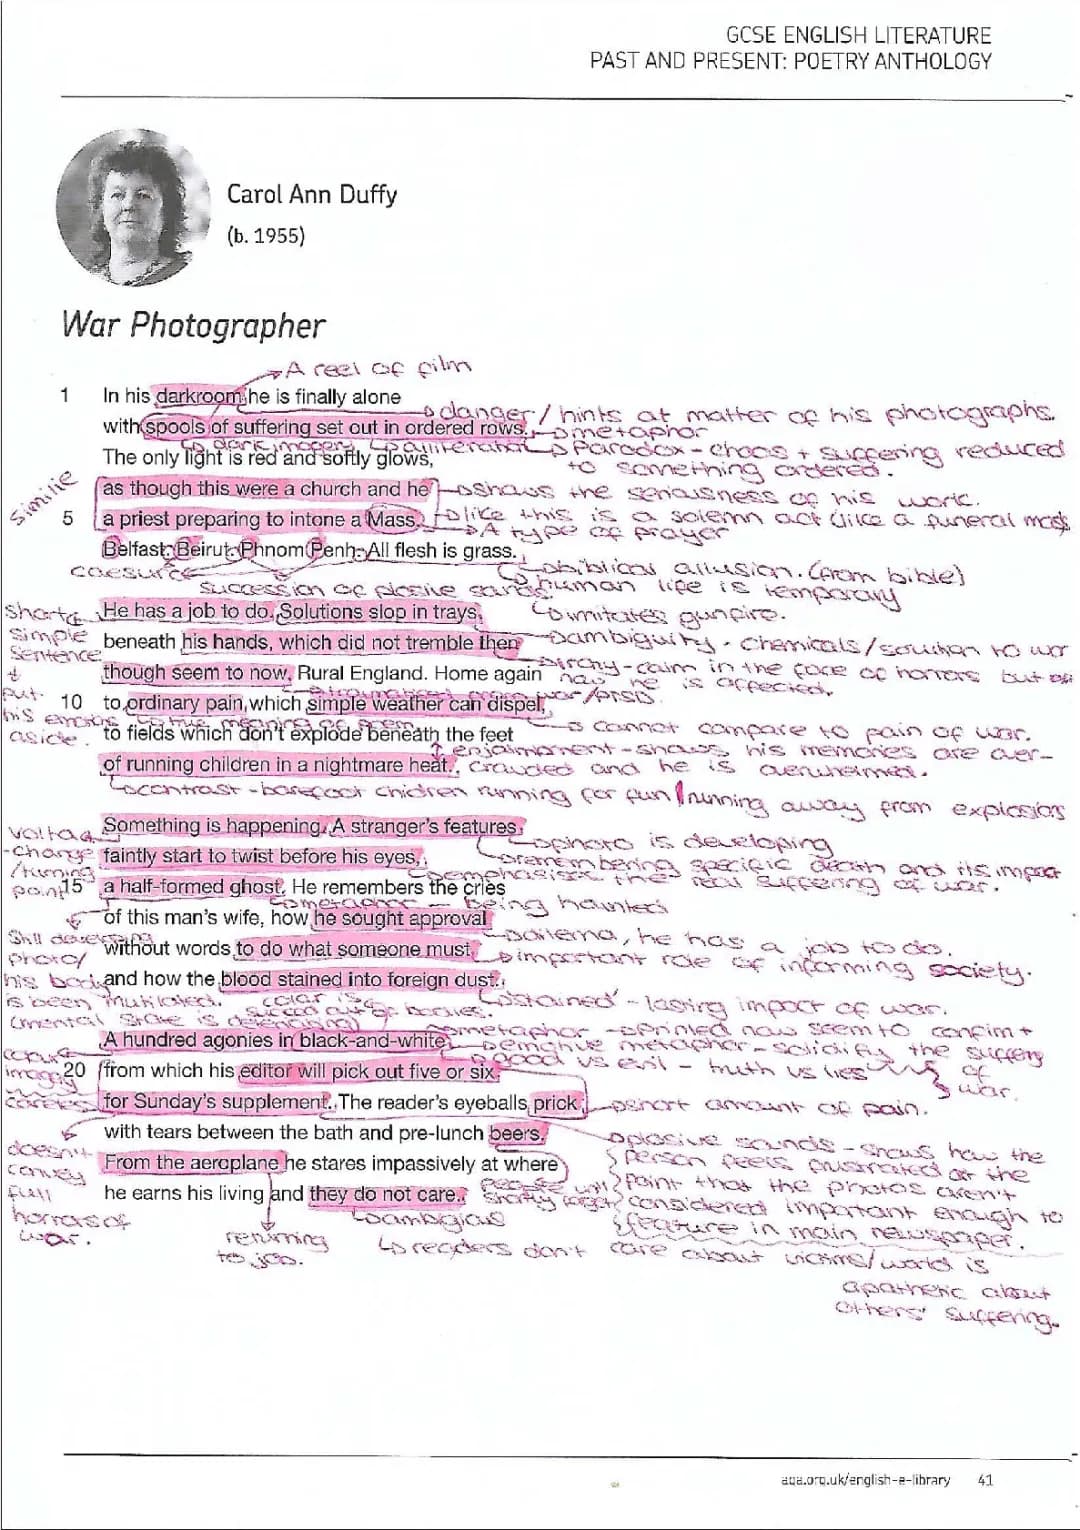 GCSE ENGLISH LITERATURE
PAST AND PRESENT: POETRY ANTHOLOGY
Carol Ann Duffy
(b. 1955)
War Photographer
A reel of film
1 In his darkroom he is finally alone
danger / hints at matter of his photographs.
with spools of suffering set out in ordered rows.
metaphor
dark imagery
alliteration
Paradox - chaos + suffering reduced
to something ordered.
The only light is red and softly glows,
Similie
as though this were a church and he
shows the seriousness of his work.
5 a priest preparing to intone a Mass.
like this is a solemn act (like a funeral mass
A type of prayer
Belfast. Beirut. Phnom Penh. All flesh is grass.
caesura
biblical allusion. (from bible)
succession of plosive sounds
human life is temporary
imitates gunfire.
Short
simple
sentence
put
his emotions
aside.
He has a job to do. Solutions slop in trays
beneath his hands, which did not tremble then
ambiguity - chemicals/solution to war
though seem to now. Rural England. Home again
irony - calm in the face of horrors but
now he is affected.
war/PTSD.
10 to ordinary pain which simple weather can dispel,
true meaning of poem
cannot compare to pain of war.
to fields which don't explode beneath the feet
enjambment - shows his memories are over-
crowded and he is overwhelmed.
of running children in a nightmare heat.
contrast - barefoot children running for fun/running away from explosions
Volta
-change
/turning
point
Something is happening. A stranger's features
photo is developing
faintly start to twist before his eyes,
remembering specific death and its impact
emphasises the real suffering of war.
15 a half-formed ghost. He remembers the cries
metaphor - being haunted
of this man's wife, how he sought approval
Still developing
photo/
his body
is been mutilated.
(mental state is
dilemma, he has a job to do.
without words to do what someone must
important role of informing society.
and how the blood stained into foreign dust.
'stained' - lasting impact of war.
A hundred agonies in black-and-white
metaphor - printed now seem to confirm +
metaphor - solidify the suffering
of
war.
good vs evil - truth vs lies
20 from which his editor will pick out five or six
for Sunday's supplement. The reader's eyeballs prick
short amount of pain.
with tears between the bath and pre-lunch beers.
doesn't
convey
full
horrors of
war.
plosive sounds - shows how the
person feels frustrated at the
point that the photos aren't
considered important enough to
feature in main newspaper.
From the aeroplane he stares impassively at where
he earns his living and they do not care.
people will
shortly forget
returning
to job.
ambigious
readers don't care about victims/world is
apathetic about
others' suffering.
aqa.org.uk/english-e-library 41